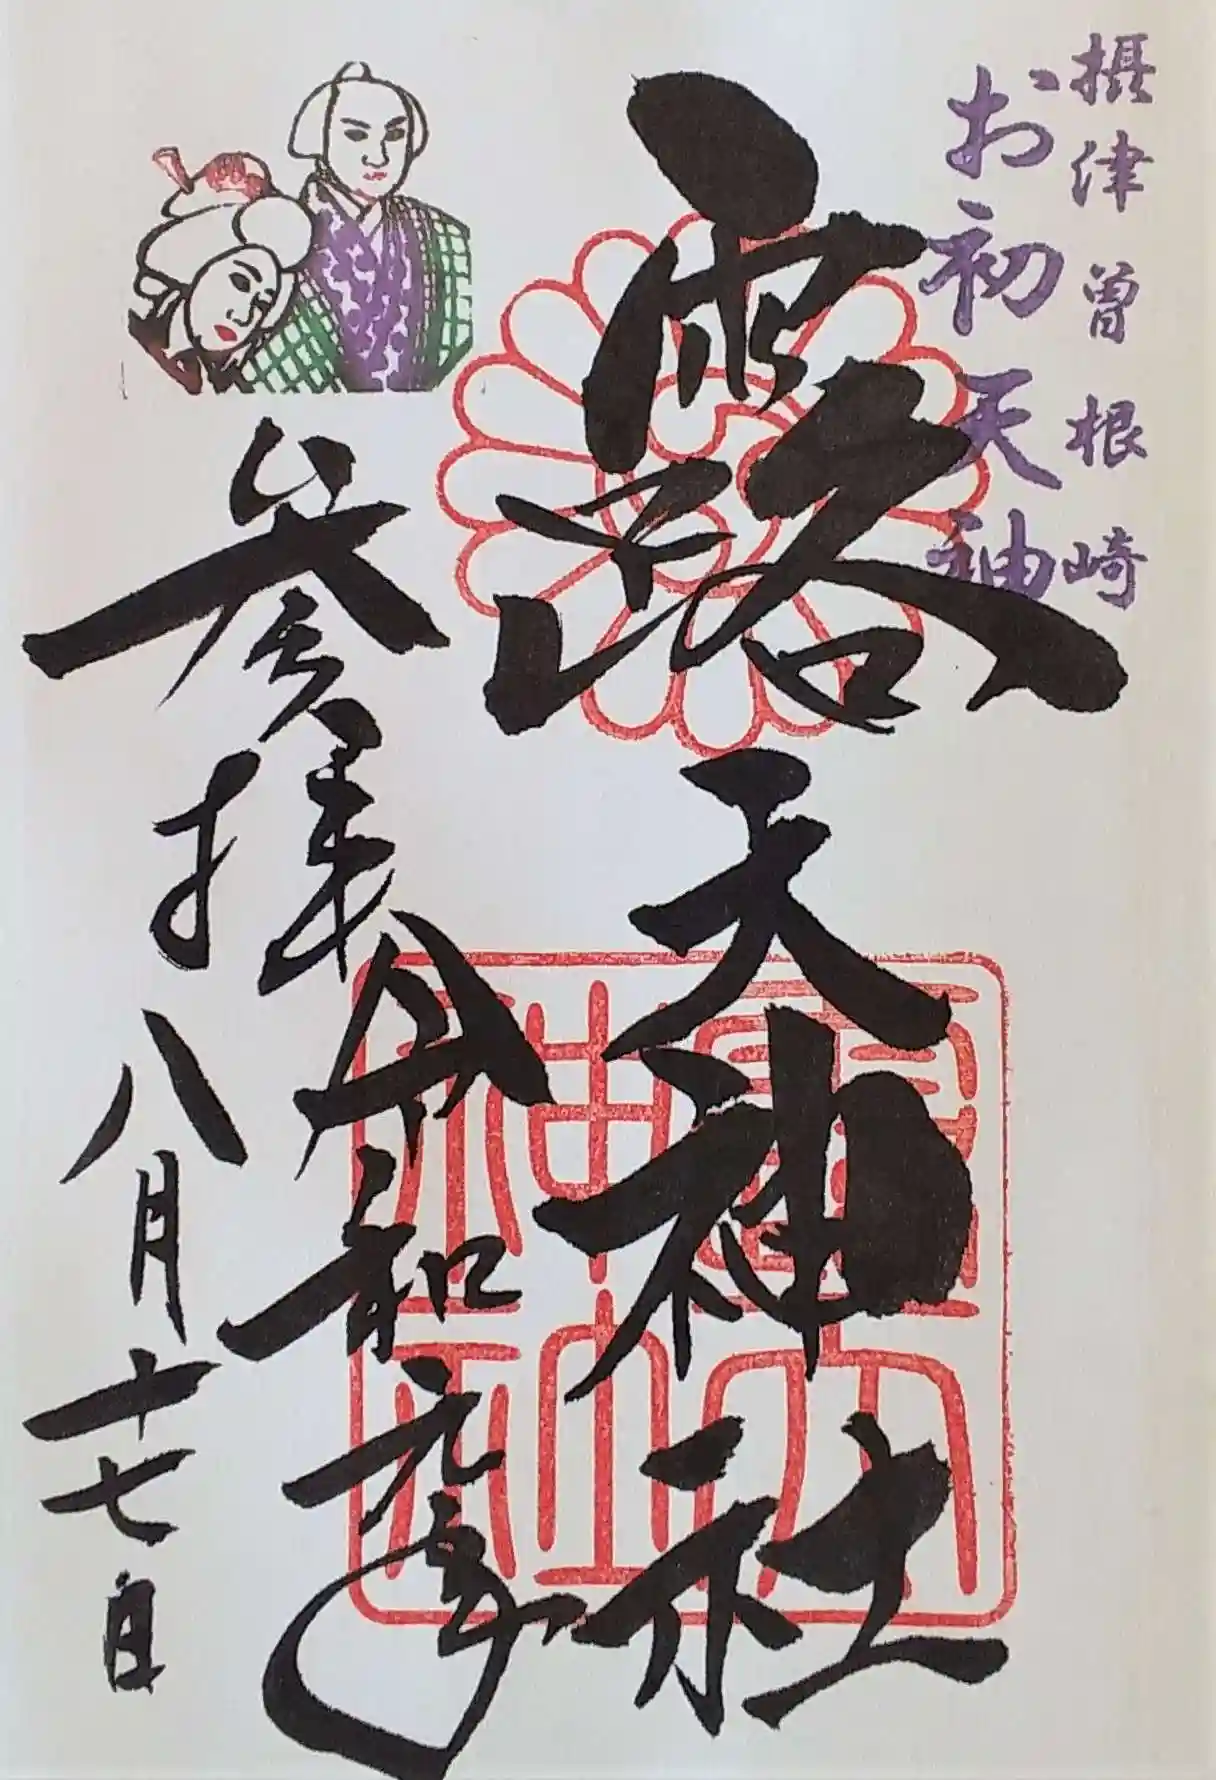 摂津曽根崎
お初天神
露天神社
露天神社
参拝令和元年
八月十七日